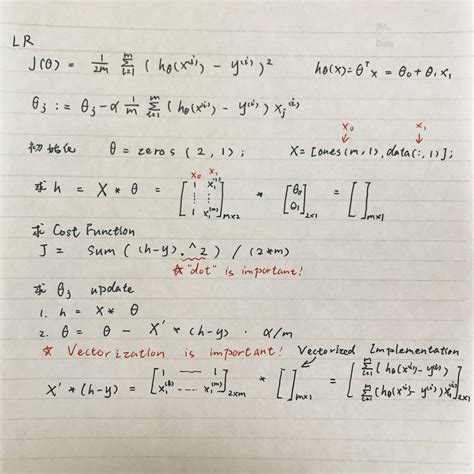 No.
Date
LR
J(θ) = 1/2m Σ_{i=1}^{m} (hθ(x^{(i)}) - y^{(i)})^2    hθ(x) = θ^T x = θ0 + θ1 x1
θj := θj - α 1/m Σ_{i=1}^{m} (hθ(x^{(i)}) - y^{(i)}) xj^{(i)}
x0 x1
初始化 θ = zeros (2, 1); X = [ones(m, 1), data(:, 1)];
x0 x1
求 h = X * θ = [1 x1^{(1)} ⋮ ⋮ 1 x1^{(m)}]m×2 * [θ0 θ1]2×1 = [ ]m×1
求 Cost Function
J = sum ( (h-y) .^2 ) / (2*m)
☆ "dot" is important!
求 θj update
1. h = X * θ
2. θ = θ - X' * (h-y) · α/m
☆ Vectorization is important! Vectorized Implementation
X' * (h-y) = [1 — 1 x1^{(1)} ---- x1^{(m)}]2×m * [ ]m×1 = [Σ_{i=1}^{m} (hθ(x^{(i)}) - y^{(i)}) Σ_{i=1}^{m} (hθ(x^{(i)}) - y^{(i)}) x1^{(i)}]2×1